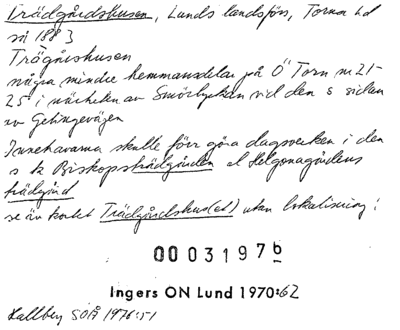 Trädgårdshusen, Lunds landsförs, Torna hd
Trägårshusen
några mindre hemmansdelar på Ö Torn nr 21-
25 i närheten av Smörlyckan vid den s sidan
av Getingevägen
Innehavarna skulle förr göra dagsverken i den
s k Biskopsträdgården el Helgonagårdens
trädgård
se även kortet Trädgårdshus(et) utan lokalisering!
00 03197 6
Ingers ON Lund 1970:62
Hallberg SOÅ 1976:51